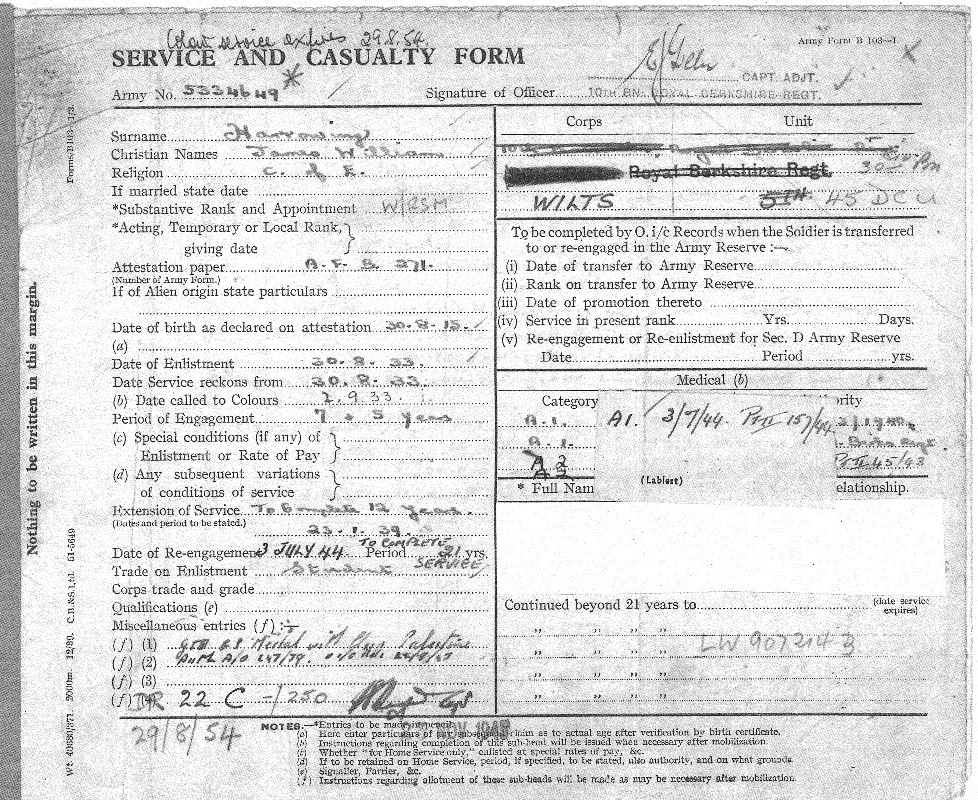 Colour service expires 29.8.54
SERVICE AND CASUALTY FORM
Army Form B 103—I
CAPT. ADJT.
Army No. 5334649
Signature of Officer 10TH BN. ROYAL BERKSHIRE REGT.
Corps Unit
Surname Harrowing
Christian Names James William
Religion C. of E.
Royal Berkshire Regt. 30
If married state date
*Substantive Rank and Appointment W/RSM
WILTS 5TH 45 DCU
*Acting, Temporary or Local Rank, giving date
Attestation paper A.F. B. 271.
(Number of Army Form.)
If of Alien origin state particulars
Date of birth as declared on attestation 30.8.15.
(a)
Date of Enlistment 30.8.33.
Date Service reckons from 30.8.33.
(b) Date called to Colours 2.9.33.
Period of Engagement 7 + 5 years
(c) Special conditions (if any) of
Enlistment or Rate of Pay
(d) Any subsequent variations
of conditions of service
Extension of Service To Complete 12 years.
(Dates and period to be stated.)
23.1.39
Date of Re-engagement 3 JULY 44 Period TO COMPLETE 21 yrs. SERVICE
Trade on Enlistment Student
Corps trade and grade
Qualifications (e)
Miscellaneous entries (f) :—
(f) (1) G.S. Medal with Clasp Palestine
(f) (2) Auth A/O 247/39.
(f) (3)
(f) (4) TR 22 C -/250
29/8/54
To be completed by O. i/c Records when the Soldier is transferred
to or re-engaged in the Army Reserve :—
(i) Date of transfer to Army Reserve
(ii) Rank on transfer to Army Reserve
(iii) Date of promotion thereto
(iv) Service in present rank Yrs. Days.
(v) Re-engagement or Re-enlistment for Sec. D Army Reserve
Date Period yrs.
Medical (b)
Category ority
A.1. A1. 3/7/44 Pt II 157/44
A.1.
A2 Pt II 45/43
A2
(Lablest)
* Full Nam elationship.
Continued beyond 21 years to (date service expires)
" " " "
" " " " LW 907214 3
" " " "
" " " "
NOTES.—*Entries to be made in pencil.
(a) Here enter particulars of any subsequent claim as to actual age after verification by birth certificate.
(b) Instructions regarding completion of this sub-head will be issued when necessary after mobilization.
(c) Whether "for Home Service only," enlisted at special rates of pay, &c.
(d) If to be retained on Home Service, period, if specified, to be stated, also authority, and on what grounds.
(e) Signaller, Farrier, &c.
(f) Instructions regarding allotment of these sub-heads will be made as may be necessary after mobilization.
Nothing to be written in this margin.
Forms/B103-1/3
Wt. 40580/971 2000m. 12/39. C.N.&S.Ltd. 51-5649